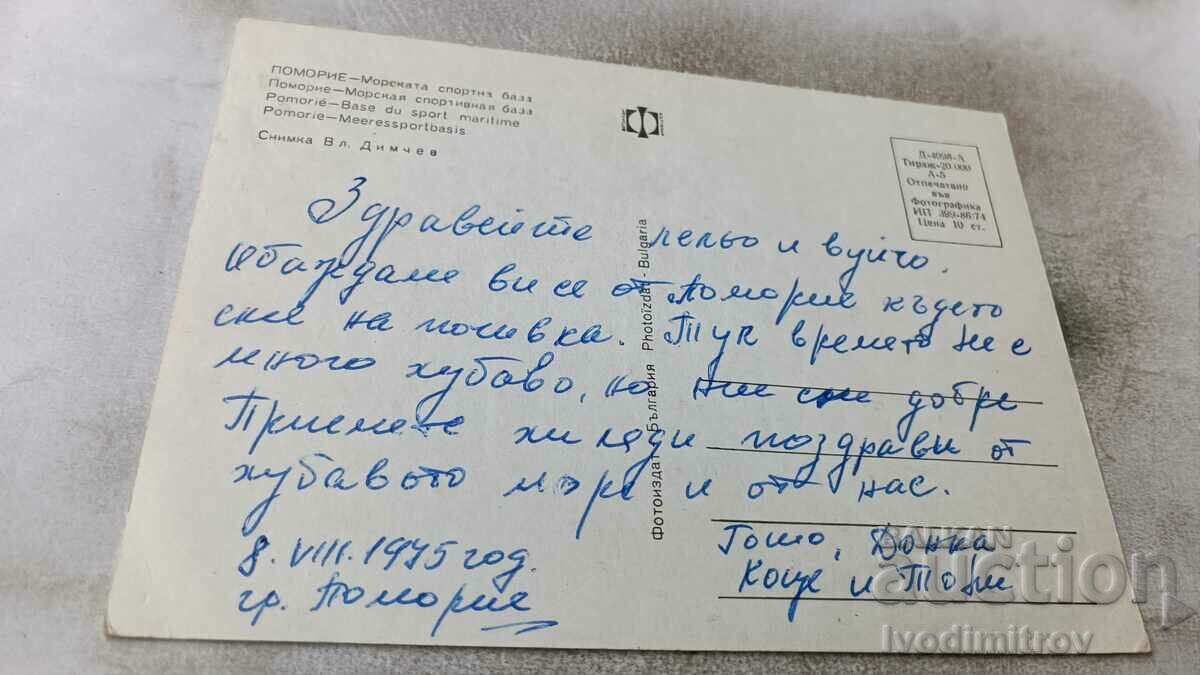 ПОМОРИЕ—Морската спортна база
Поморие—Морская спортивная база
Pomorié—Base du sport maritime
Pomorie—Meeressportbasis
Снимка Вл. Димчев
Д-4098-А
Тираж-20 000
А-5
Отпечатано
във
Фотографика
ИП 399-86:74
Цена 10 ст.
Фотоиздат България Photoizdat - Bulgaria
Здравейте лельо и вуйчо.
Обаждаме ви се от Поморие където
сме на почивка. Тук времето не е
много хубаво, но ние сме добре
Приемете хиляди поздрави от
хубавото море и от нас.
8. VIII. 1975 год.
гр. Поморие
Гошо, Донка
Коце и Тони
BALKAN
auction
Ivodimitrov